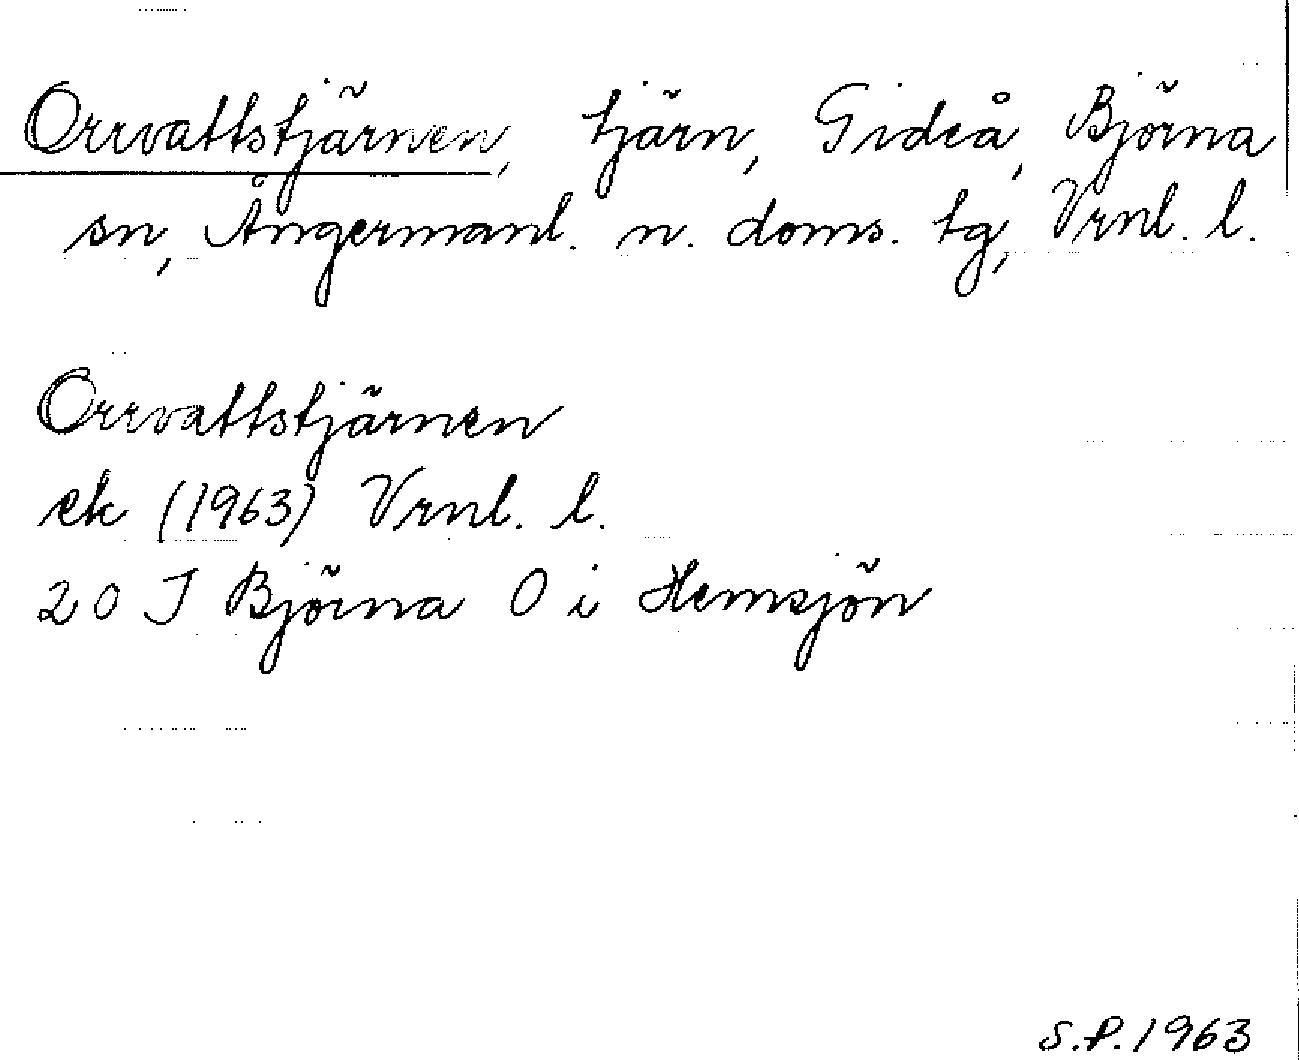 Orrvattstjärnen, tjärn, Gideå, Björna
sn, Ångermanl. n. doms. tg, Vrnl. l.
Orrvattstjärnen
ek (1963) Vrnl. l.
20 J Björna O i Hemsjön
S.P. 1963